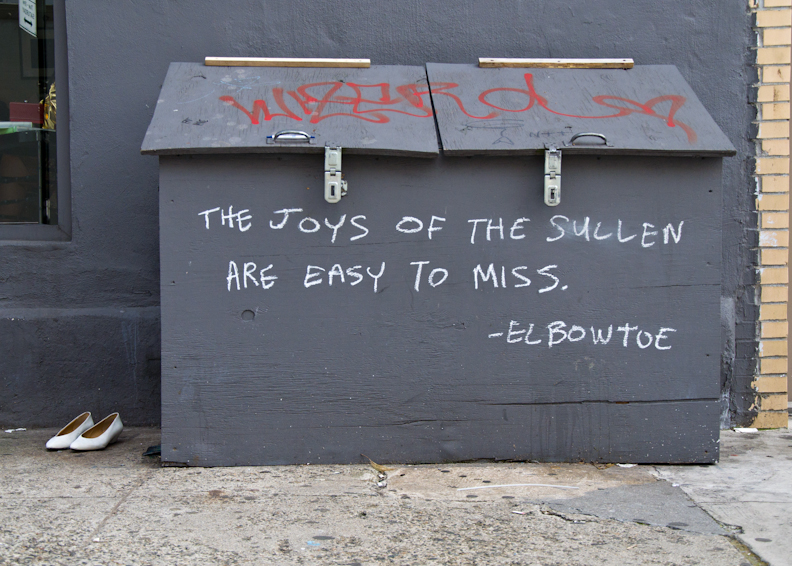 THE JOYS OF THE SULLEN
ARE EASY TO MISS.
-ELBOWTOE